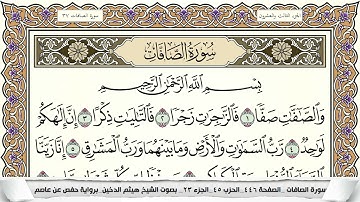 سورة الصافات ٣٧
الجزء الثالث والعشرون
سُورَةُ الصَّافَّاتِ
بِسْمِ اللَّهِ الرَّحْمَٰنِ الرَّحِيمِ
وَالصَّافَّاتِ صَفًّا ١ فَالزَّاجِرَاتِ زَجْرًا ٢ فَالتَّالِيَاتِ ذِكْرًا ٣ إِنَّ إِلَٰهَكُمْ
لَوَاحِدٌ ٤ رَّبُّ السَّمَاوَاتِ وَالْأَرْضِ وَمَا بَيْنَهُمَا وَرَبُّ الْمَشَارِقِ ٥ إِنَّا زَيَّنَّا
سورة الصافات _ الصفحة ٤٤٦ _ الحزب ٤٥ _ الجزء ٢٣ _ بصوت الشيخ هيثم الدخين _ برواية حفص عن عاصم